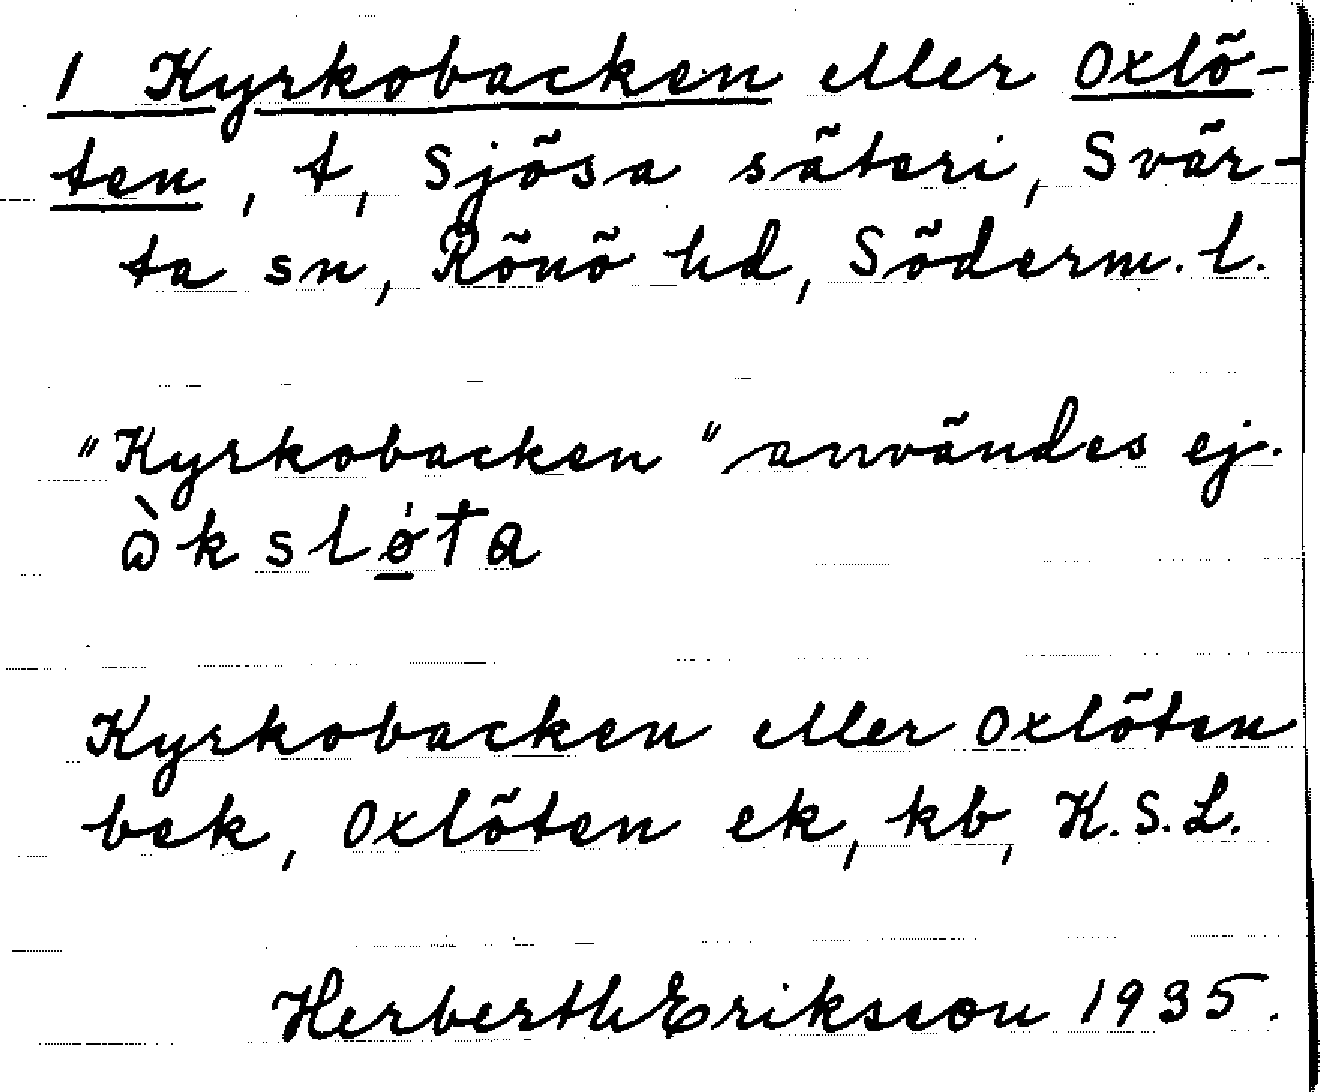 1 Kyrkobacken eller Oxlö-
ten, t, Sjösa säteri, Svär-
ta sn, Rönö hd, Söderm. l.
"Kyrkobacken" användes ej.
òkslǿ̲ta
Kyrkobacken eller Oxlöten
bek, Oxlöten ek, kb, K.S.L.
Herberth Eriksson 1935.